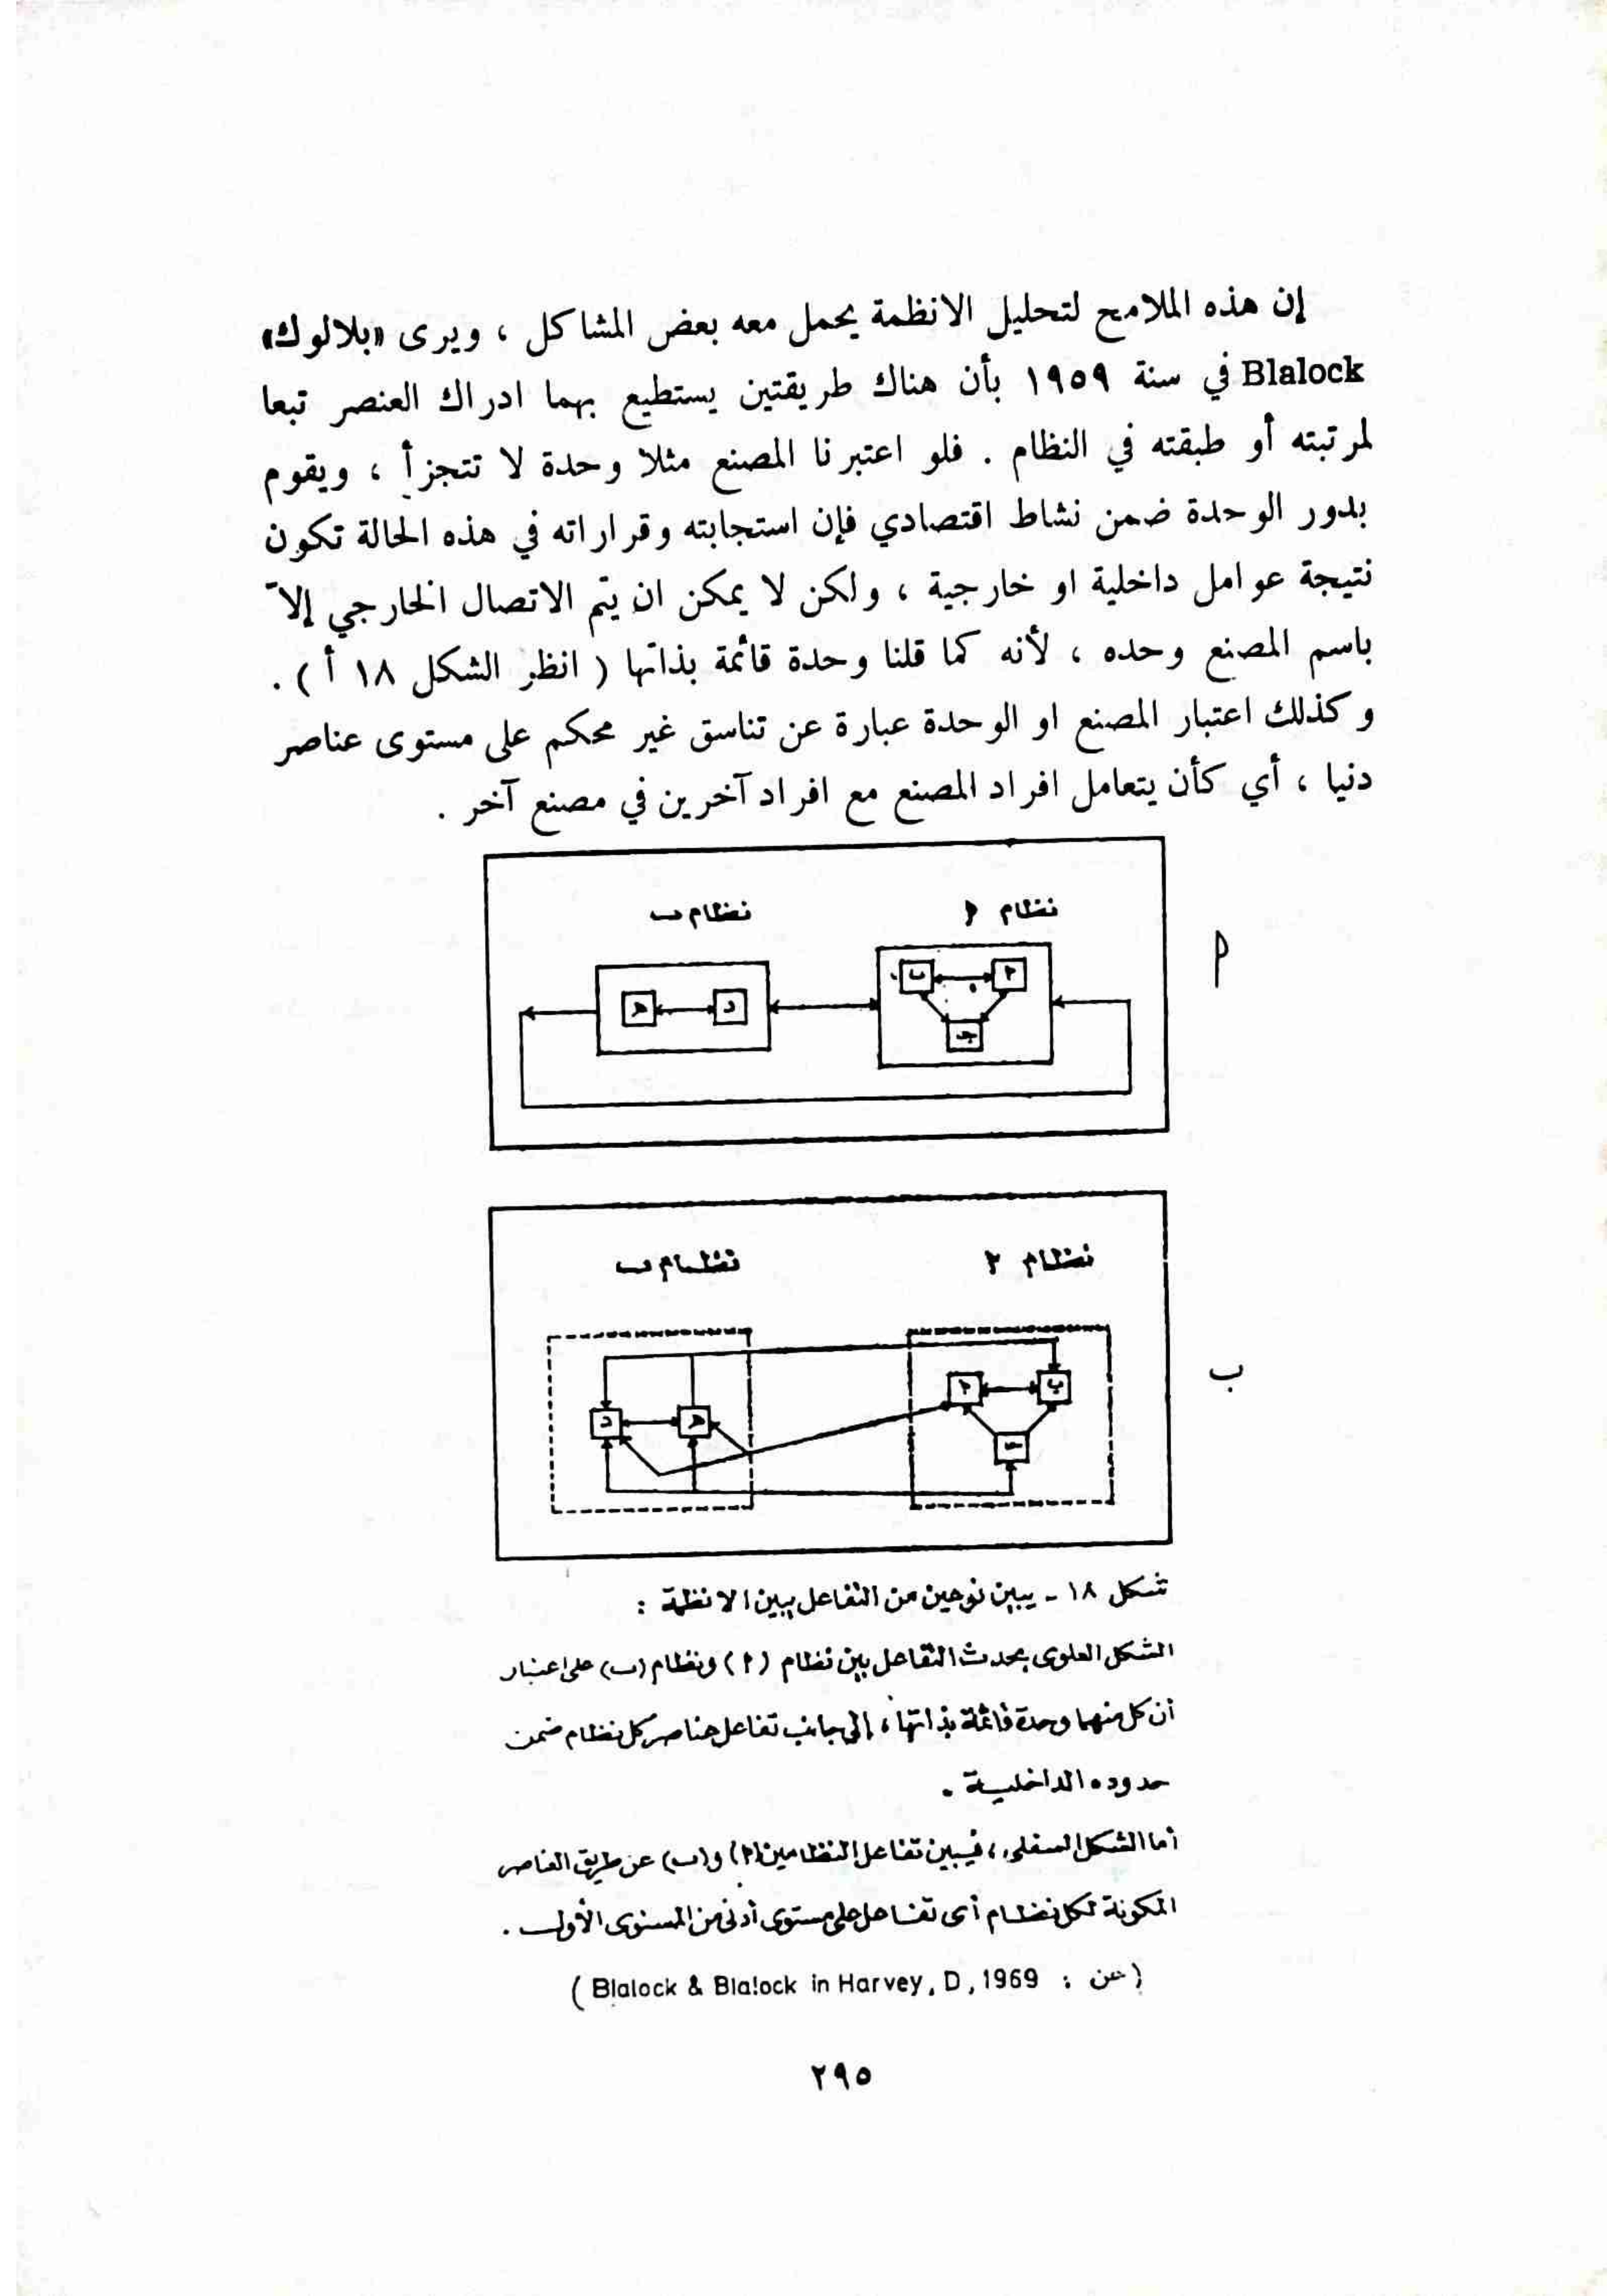 إن هذه الملامح لتحليل الانظمة يحمل معه بعض المشاكل ، ويرى «بلالوك»
Blalock في سنة ١٩٥٩ بأن هناك طريقتين يستطيع بهما ادراك العنصر تبعا
لمرتبته أو طبقته في النظام . فلو اعتبرنا المصنع مثلا وحدة لا تتجزأ ، ويقوم
بدور الوحدة ضمن نشاط اقتصادي فإن استجابته وقراراته في هذه الحالة تكون
نتيجة عوامل داخلية او خارجية ، ولكن لا يمكن ان يتم الاتصال الخارجي إلاّ
باسم المصنع وحده ، لأنه كما قلنا وحدة قائمة بذاتها ( انظر الشكل ١٨ أ ) .
وكذلك اعتبار المصنع او الوحدة عبارة عن تناسق غير محكم على مستوى عناصر
دنيا ، أي كأن يتعامل افراد المصنع مع افراد آخرين في مصنع آخر .
نظام أ نظام ب
أ
أ ب
د هـ
جـ
نظام أ نظام ب
ب
ب أ
هـ د
جـ
شكل ١٨ - يبين نوعين من التفاعل بين الانظمة :
الشكل العلوى يحدث التفاعل بين نظام (أ) ونظام (ب) على اعتبار
أن كل منهما وحدة قائمة بذاتها ، إلى جانب تفاعل عناصر كل نظام ضمن
حدوده الداخلية .
أما الشكل السفلى ، فيبين تفاعل النظامين (أ) و (ب) عن طريق العناصر
المكونة لكل نظام أى تفاعل على مستوى أدنى من المستوى الأول .
(عن : Blalock & Blalock in Harvey, D, 1969 )
٢٩٥